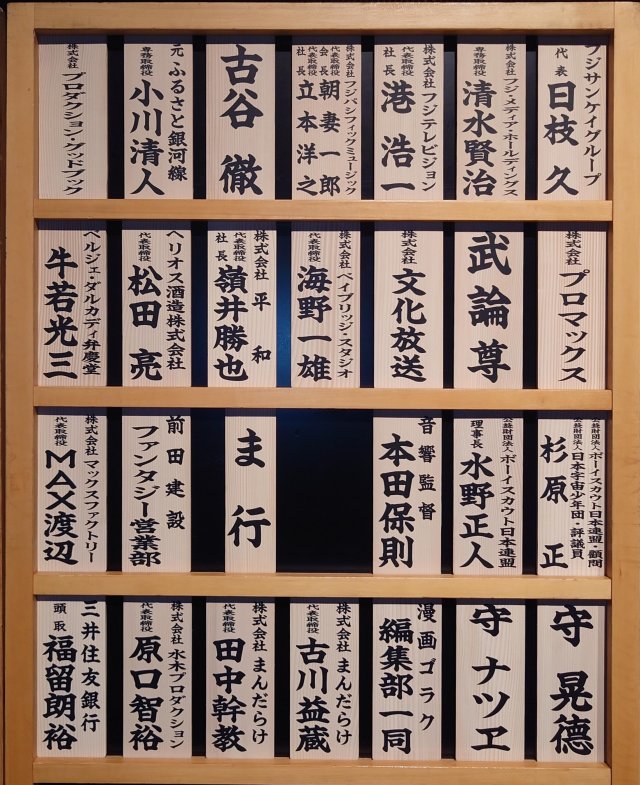 フジサンケイグループ
代表
日枝 久
株式会社フジ・メディア・ホールディングス
専務取締役
清水賢治
株式会社フジテレビジョン
代表取締役
社長
港 浩一
株式会社フジパシフィックミュージック
代表取締役
会長
朝妻一郎
代表取締役
社長
立本洋之
古谷 徹
元ふるさと銀河線
専務取締役
小川清人
株式会社
プロダクション・グッドブック
株式会社
プロマックス
武論尊
株式会社
文化放送
株式会社ベイブリッジ・スタジオ
代表取締役
海野一雄
株式会社 平和
代表取締役
社長
嶺井勝也
ヘリオス酒造株式会社
代表取締役
松田 亮
ベルジェ・ダルカディ弁慶堂
牛若光三
公益財団法人ボーイスカウト日本連盟・顧問
公益財団法人日本宇宙少年団・評議員
杉原 正
公益財団法人ボーイスカウト日本連盟
理事長
水野正人
音響監督
本田保則
ま行
前田建設
ファンタジー営業部
株式会社マックスファクトリー
代表取締役
MAX渡辺
守 晃德
守 ナツヱ
漫画ゴラク
編集部一同
株式会社まんだらけ
代表取締役
古川益蔵
株式会社まんだらけ
代表取締役
田中幹教
株式会社水木プロダクション
代表取締役
原口智裕
三井住友銀行
頭取
福留朗裕